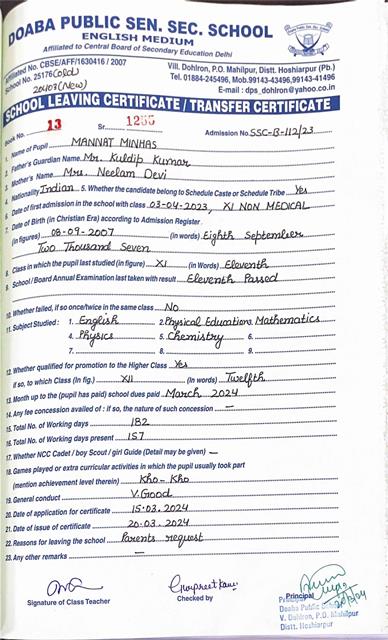 DOABA PUBLIC SEN. SEC. SCHOOL
ENGLISH MEDIUM
Affiliated to Central Board of Secondary Education Delhi
Affiliated No. CBSE/AFF/1630416 / 2007
School No. 25176 (Old)
20407 (New)
Vill. Dohlron, P.O. Mahilpur, Distt. Hoshiarpur (Pb.)
Tel. 01884-245496, Mob.99143-43496,99143-41496
E-mail : dps_dohlron@yahoo.co.in
SCHOOL LEAVING CERTIFICATE / TRANSFER CERTIFICATE
Book No. 13 Sr. 1255 Admission No. SSC-B-112/23
1. Name of Pupil MANNAT MINHAS
2. Father's Guardian Name Mr. Kuldip Kumar
3. Mother's Name Mrs. Neelam Devi
4. Nationality Indian 5. Whether the candidate belong to Schedule Caste or Schedule Tribe Yes
6. Date of first admission in the school with class 03-04-2023, XI NON MEDICAL
7. Date of Birth (in Christian Era) according to Admission Register
(in figures) 08-09-2007 (in words) Eighth September
Two Thousand Seven
8. Class in which the pupil last studied (in figure) XI (in Words) Eleventh
9. School / Board Annual Examination last taken with result Eleventh Passed
10. Whether failed, if so once/twice in the same class No
11. Subject Studied : 1. English 2. Physical Education 3. Mathematics
4. Physics 5. Chemistry 6.
7. 8. 9.
12. Whether qualified for promotion to the Higher Class Yes
if so, to which Class (in fig.) XII (in words) Twelfth
13. Month up to the (pupil has paid) school dues paid March 2024
14. Any fee concession availed of : if so, the nature of such concession —
15. Total No. of Working days 182
16. Total No. of Working days present 157
17. Whether NCC Cadet / boy Scout / girl Guide (Detail may be given) —
18. Games played or extra curricular activities in which the pupil usually took part
(mention achievement level therein) Kho-Kho
19. General conduct V.Good
20. Date of application for certificate 15.03.2024
21. Date of issue of certificate 20.03.2024
22. Reasons for leaving the school Parents request
23. Any other remarks —
Gurpreet Kaur
Signature of Class Teacher Checked by Principal
Principal
Doaba Public School
V. Dohlron, P.O. Mahilpur
Distt. Hoshiarpur